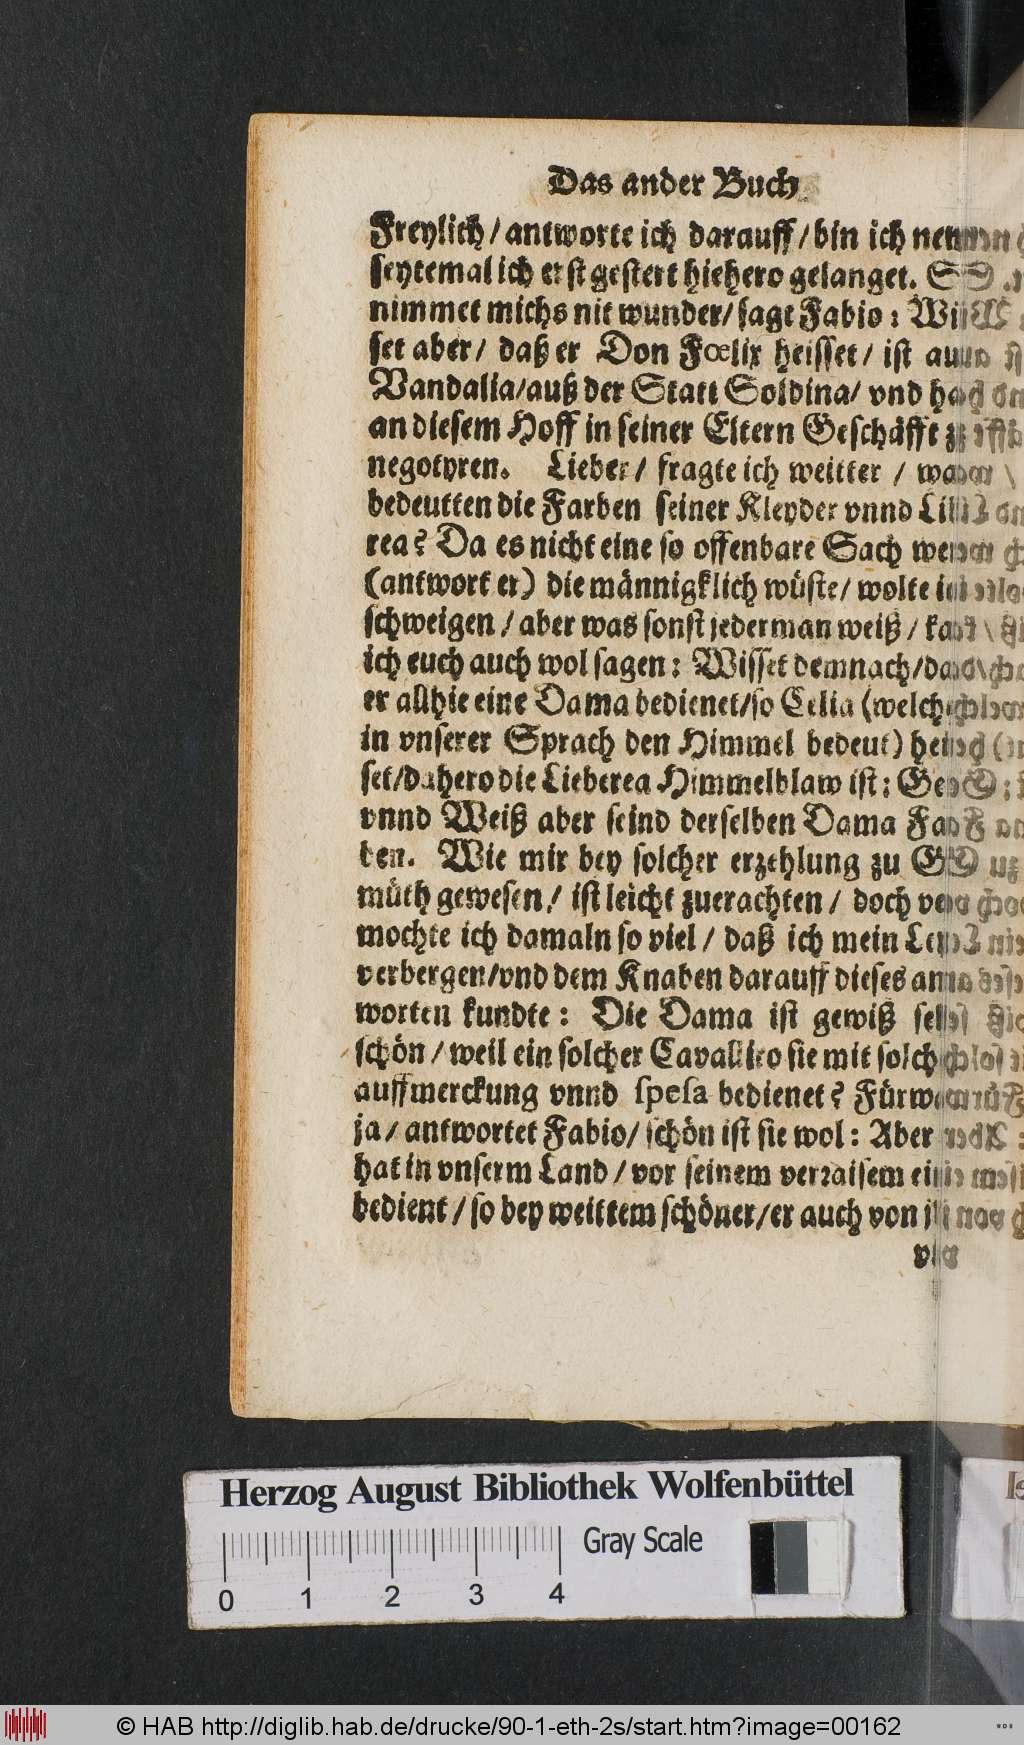 Das ander Buch
Freylich / antworte ich darauff / bin ich
seytemal ich erst gestert hiehero gelanget.
nimmet michs nit wunder / sagt Fabio:
set aber / daß er Don Fœlix heisset / ist
Vandalia / auß der Statt Soldina / vnd
an diesem Hoff in seiner Eltern Geschäfft
negotyren. Lieber / fragte ich weitter /
bedeutten die Farben seiner Kleyder vnnd
rea? Da es nicht eine so offenbare Sach
(antwort er) die männigklich wüste / wolte
schweigen / aber was sonst jederman weiß /
ich euch auch wol sagen: Wisset demnach /
er allhie eine Dama bedienet / so Celia (welch
in vnserer Sprach den Himmel bedeut)
set / dahero die Lieberea Himmelblaw ist:
vnnd Weiß aber seind derselben Dama
ben. Wie mir bey solcher erzehlung zu
müth gewesen / ist leicht zuerachten / doch
mochte ich damaln so viel / daß ich mein
verbergen / vnd dem Knaben darauff dieses
worten kundte: Die Dama ist gewiß
schön / weil ein solcher Cavalliro sie mit solch
auffmerckung vnnd spesa bedienet? Fürw
ja / antwortet Fabio / schön ist sie wol: Aber
hat in vnserm Land / vor seinem verraisem
bedient / so bey weittem schöner / er auch von
Herzog August Bibliothek Wolfenbüttel
Gray Scale
0 1 2 3 4
© HAB http://diglib.hab.de/drucke/90-1-eth-2s/start.htm?image=00162